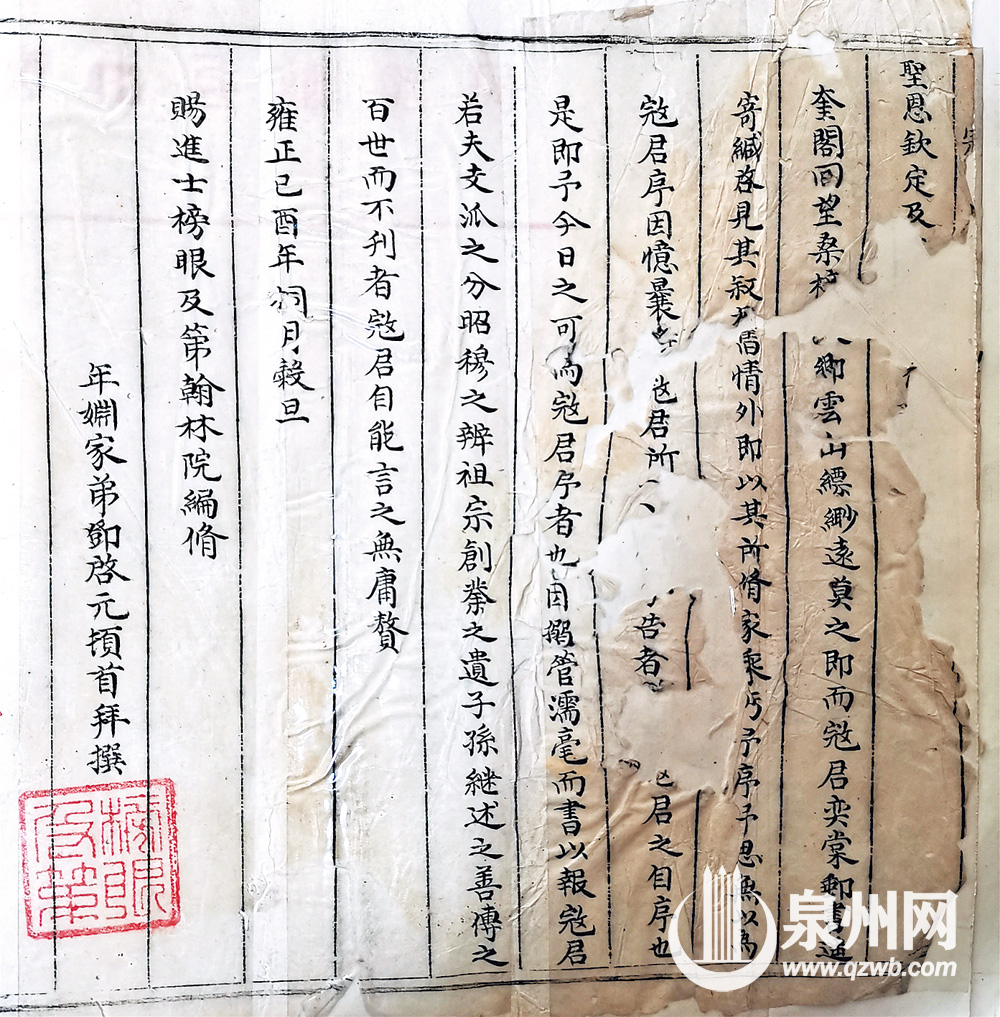 聖恩欽定及
奎閣回望桑梓鄉雲山縹緲遠莫之即而愧君奕棠郵書遞
寄緘啓見其叙情外即以其所脩家乘丐予序予思無以為
愧君序因憶曩君所告者君之自序也
是即予今日之可為愧君序者也因搦管濡毫而書以報愧君
若夫支派之分昭穆之辨祖宗創業之遺子孫継述之善傳之
百世而不刋者愧君自能言之無庸贅
雍正己酉年祠月穀旦
賜進士榜眼及第翰林院編脩
年姻家弟鄧啓元頓首拜撰
榜眼及第
泉州网
www.qzwb.com